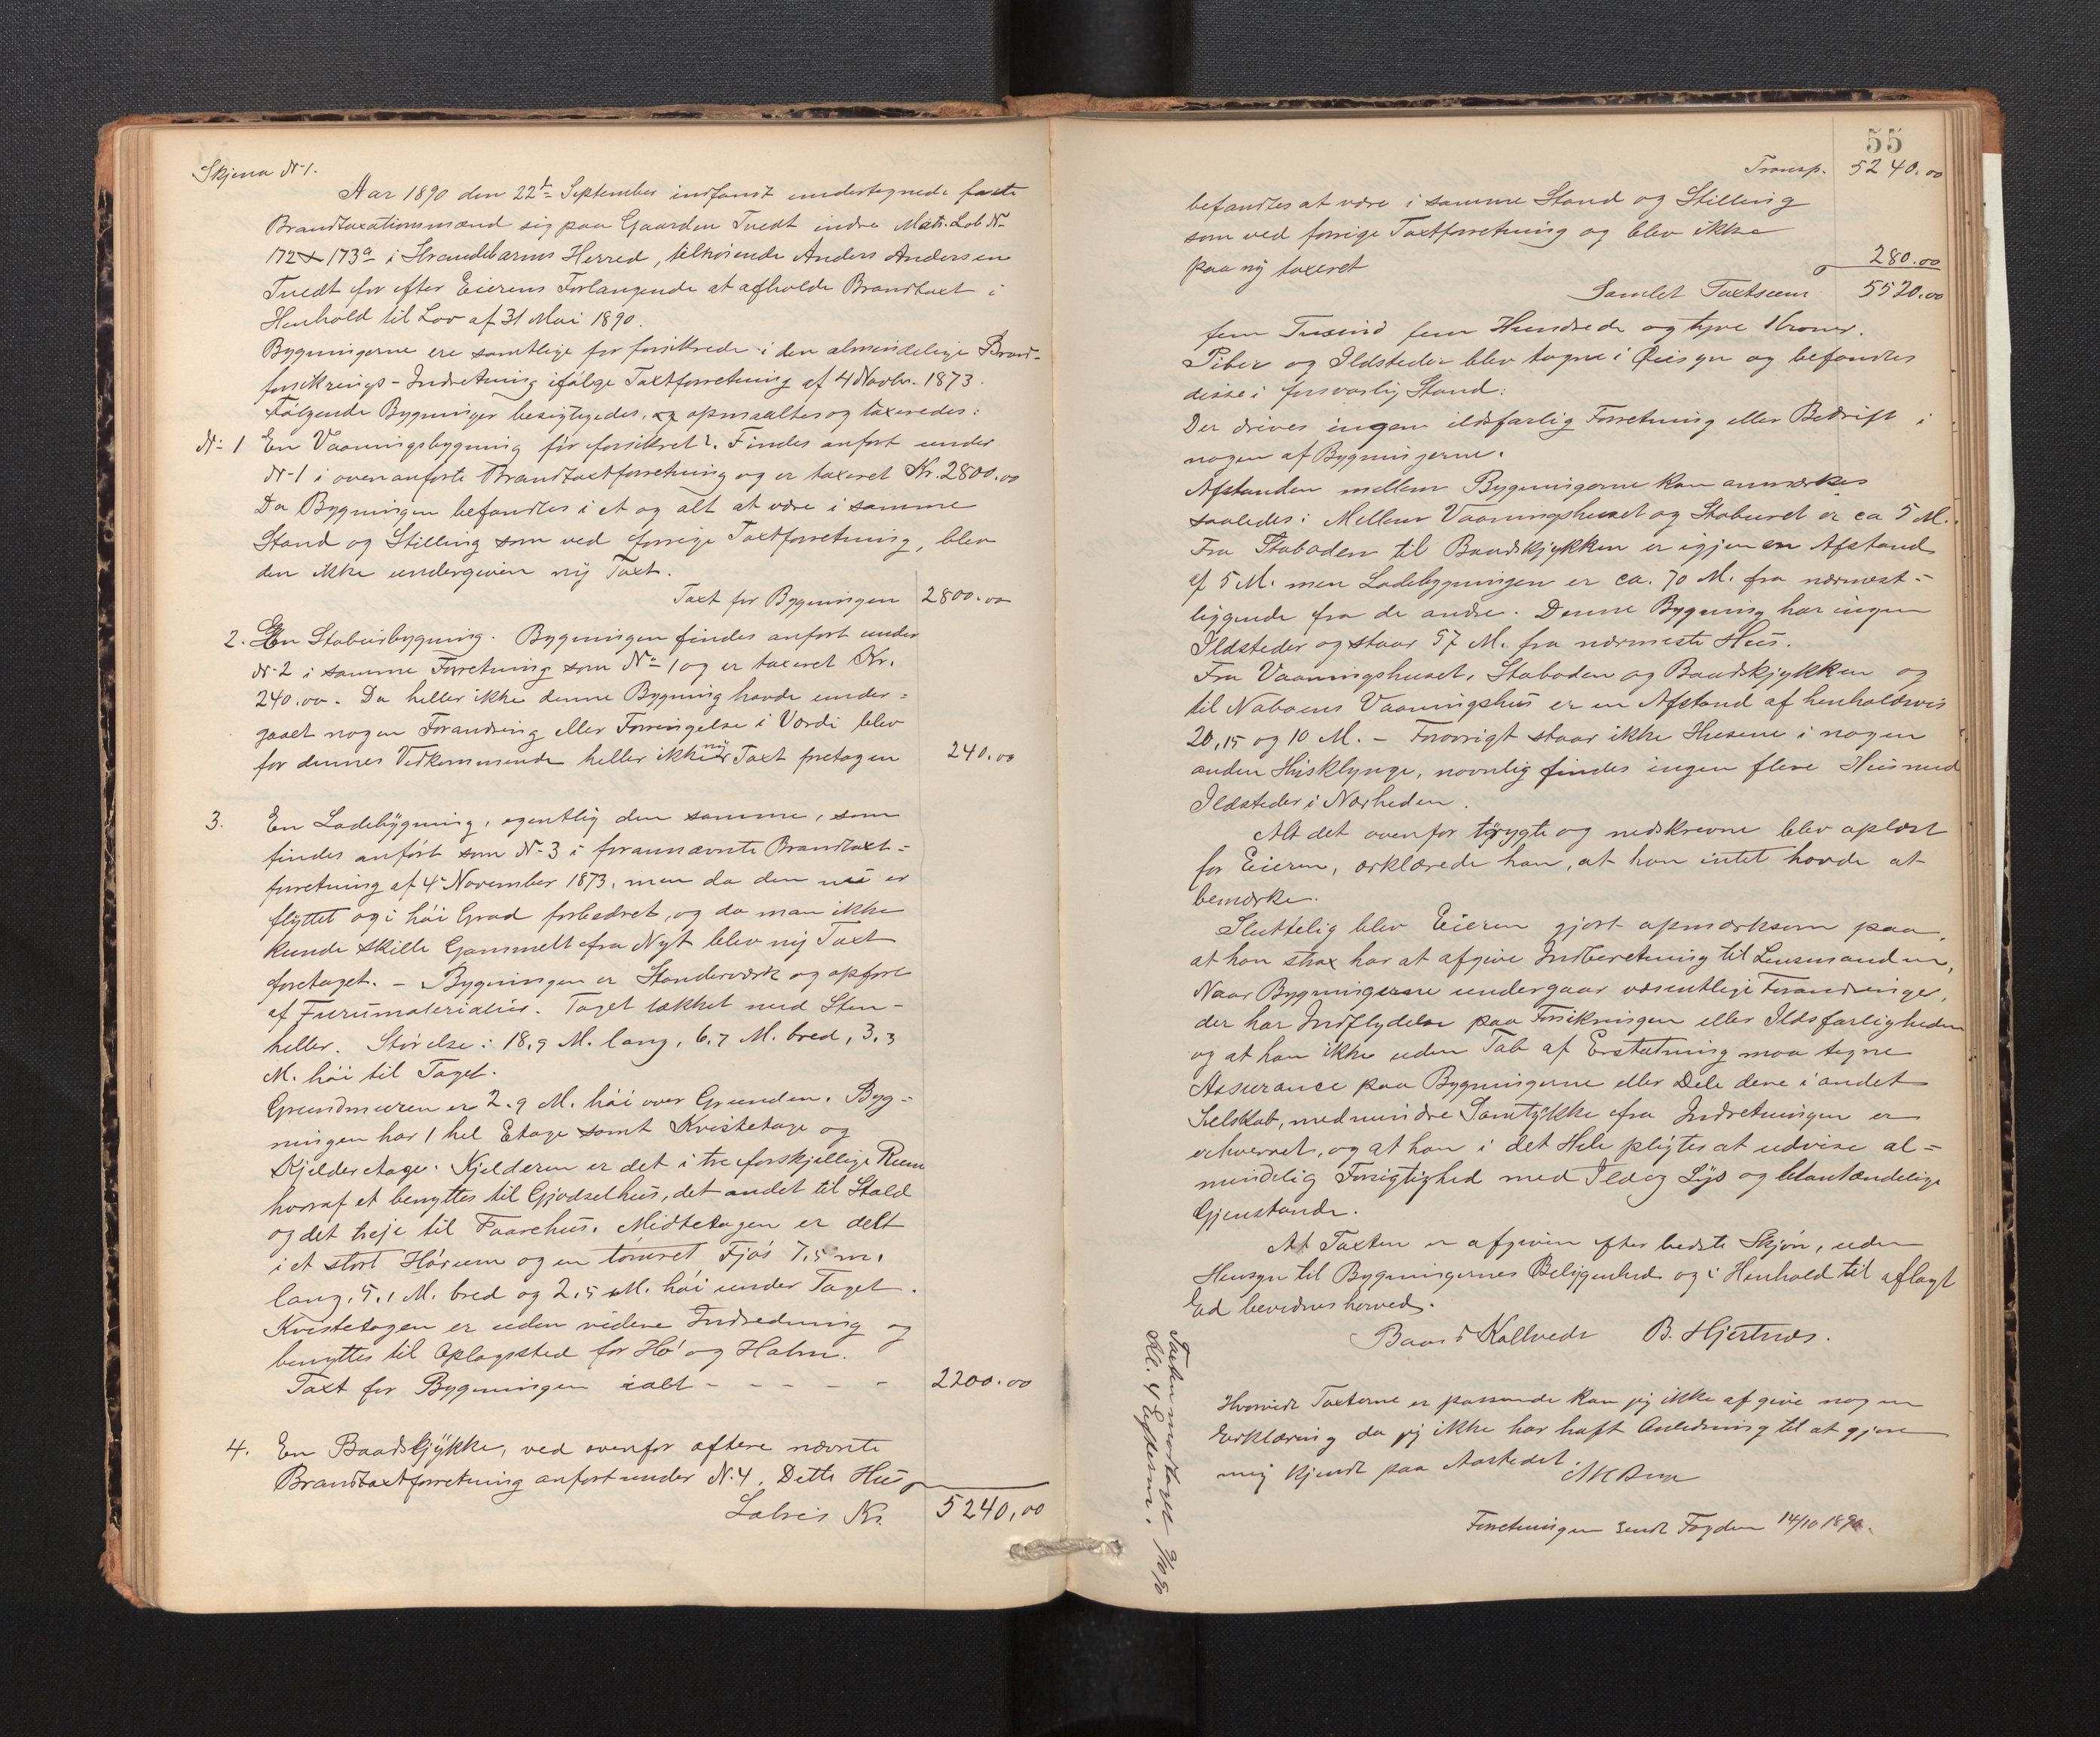 Skjema N-1.
Aar 1890 den 22de September indfandt undertegnede faste
Brandtaxationsmænd sig paa Gaarden Tvedt indre Matr. Løb N-
172 & 173a i Strandebarms Herred, tilhørende Anders Andersen
Tvedt for efter Eierens Forlangende at afholde Brandtaxt i
Henhold til Lov af 31 Mai 1890.
Bygningerne ere samtlige før forsikrede i den almindelige Brand-
forsikrings-Indretning ifølge Taxtforretning af 4 Novbr. 1873.
Følgende Bygninger besigtigedes, og opmaaltes og taxeredes:
N- 1 En Vaaningsbygning før forsikret. Findes anført under
N-1 i ovenanførte Brandtaxtforretning og er taxeret Kr. 2800.00
Da Bygningen befandtes i et og alt at være i samme
Stand og Stilling som ved forrige Taxtforretning, blev
den ikke undergiven ny Taxt.
Taxt for Bygningen 2800.00
2. En Stabursbygning. Bygningen findes anført under
N-2 i samme Forretning som N- 1 og er taxeret Kr.
240.00. Da heller ikke denne Bygning havde under-
gaaet nogen Forandring eller Forringelse i Værdi blev
for dennes Vedkommende heller ikke ny Taxt foretagen 240.00
3. En Ladebygning, egentlig den samme, som
findes anført som N-3 i forannævnte Brandtaxt-
forretning af 4 November 1873, men da den nu er
flyttet og i høi Grad forbedret, og da man ikke
kunde skille Gammelt fra Nyt blev ny Taxt
foretaget. - Bygningen er Standerværk og opført
af Furumaterialier. Taget takket med Sten-
heller. Størelse: 18,9 M. lang, 6,7 M. bred, 3,3
M. høi til Taget.
Grundmuren er 2,9 M. høi over Grunden. Byg-
ningen har 1 hel Etage samt Kvistetage og
Kjelderetage. Kjelderen er delt i tre forskjellige Rum
hvoraf et benyttes til Gjødselhus, det andet til Stald
og det treje til Faarehus. Midtetagen er delt
i et stort Hørum og en tømret Fjøs 7,5 m.
lang, 5,1 M. bred og 2,5 M. høi under Taget.
Kvistetagen er uden videre Indredning og
benyttes til Oplagssted for Hø og Halm.
Taxt for Bygningen ialt - - - - - 2200.00
4. En Baadskjykke, ved ovenfor oftere nævnte
Brandtaxtforretning anført under N. 4. Dette Hus
Latris Kr. 5240,00
55
Transp. 5240.00
befandtes at være i samme Stand og Stilling
som ved forrige Taxtforretning og blev ikke
paa ny taxeret 280.00
Samlet Taxtsum 5520.00
fem Tusind fem Hundrede og tyve Kroner.
Piber og Ildsteder blev tagne i Øiesyn og befandtes
disse i forsvarlig Stand.
Der drives ingen ildsfarlig Forretning eller Bedrift i
nogen af Bygningerne.
Afstanden mellem Bygningerne kan anmærkes
saaledes: Mellem Vaaningshuset og Staburet er ca 5 M.
Fra Stabaden til Baadskjykken er igjen en Afstand
af 5 M. men Ladebygningen er ca. 70 M. fra nærmest-
liggende fra de andre. Denne Bygning har ingen
Ildsteder og staar 57 M. fra nærmeste Hus.
Fra Vaaningshuset, Stabaden og Baadskjykken og
til Naboens Vaaningshus er en Afstand af henholdsvis
20, 15 og 10 M. - Forøvrigt staar ikke Husene i nogen
anden Husklynge, navnlig findes ingen flere Hus med
Ildsteder i Nærheden.
Alt det ovenfor og nedskrevne blev oplæst
for Eieren, erklærede han, at han intet havde at
bemærke.
Sluttelig blev Eieren gjort opmærksom paa,
at han strax har at afgive Indberetning til Lensmanden,
Naar Bygningerne undergaar væsentlige Forandringer,
der har Indflydelse paa Forsikringen eller Ildsfarligheden
og at han ikke uden Tab af Erstatning maa tegne
Assurance paa Bygningerne eller Dele dere i andet
Selskab, medmindre Samtykke fra Indretningen er
erhvervet, og at han i det Hele pligtes at udvise al-
mindelig Forsigtighed med Ild og Lys og letantændelige
Gjenstande.
At Taxten er afgiven efter bedste Skjøn, uden
Hensyn til Bygningernes Beliggenhed og i Henhold til aflagt
Ed bevidnes herved.
Baard Kallvedt B. Hjertnes.
Hvorvidt Taxterne er passende kan jeg ikke afgive nogen
Erklæring da jeg ikke har haft Anledning til at gjøre
mig kjendt paa Aastedet.
Forretningen sendt Fogden 14/10 1890.
Taxten modtaget 9/10 90
Kl. 4 Efterm.